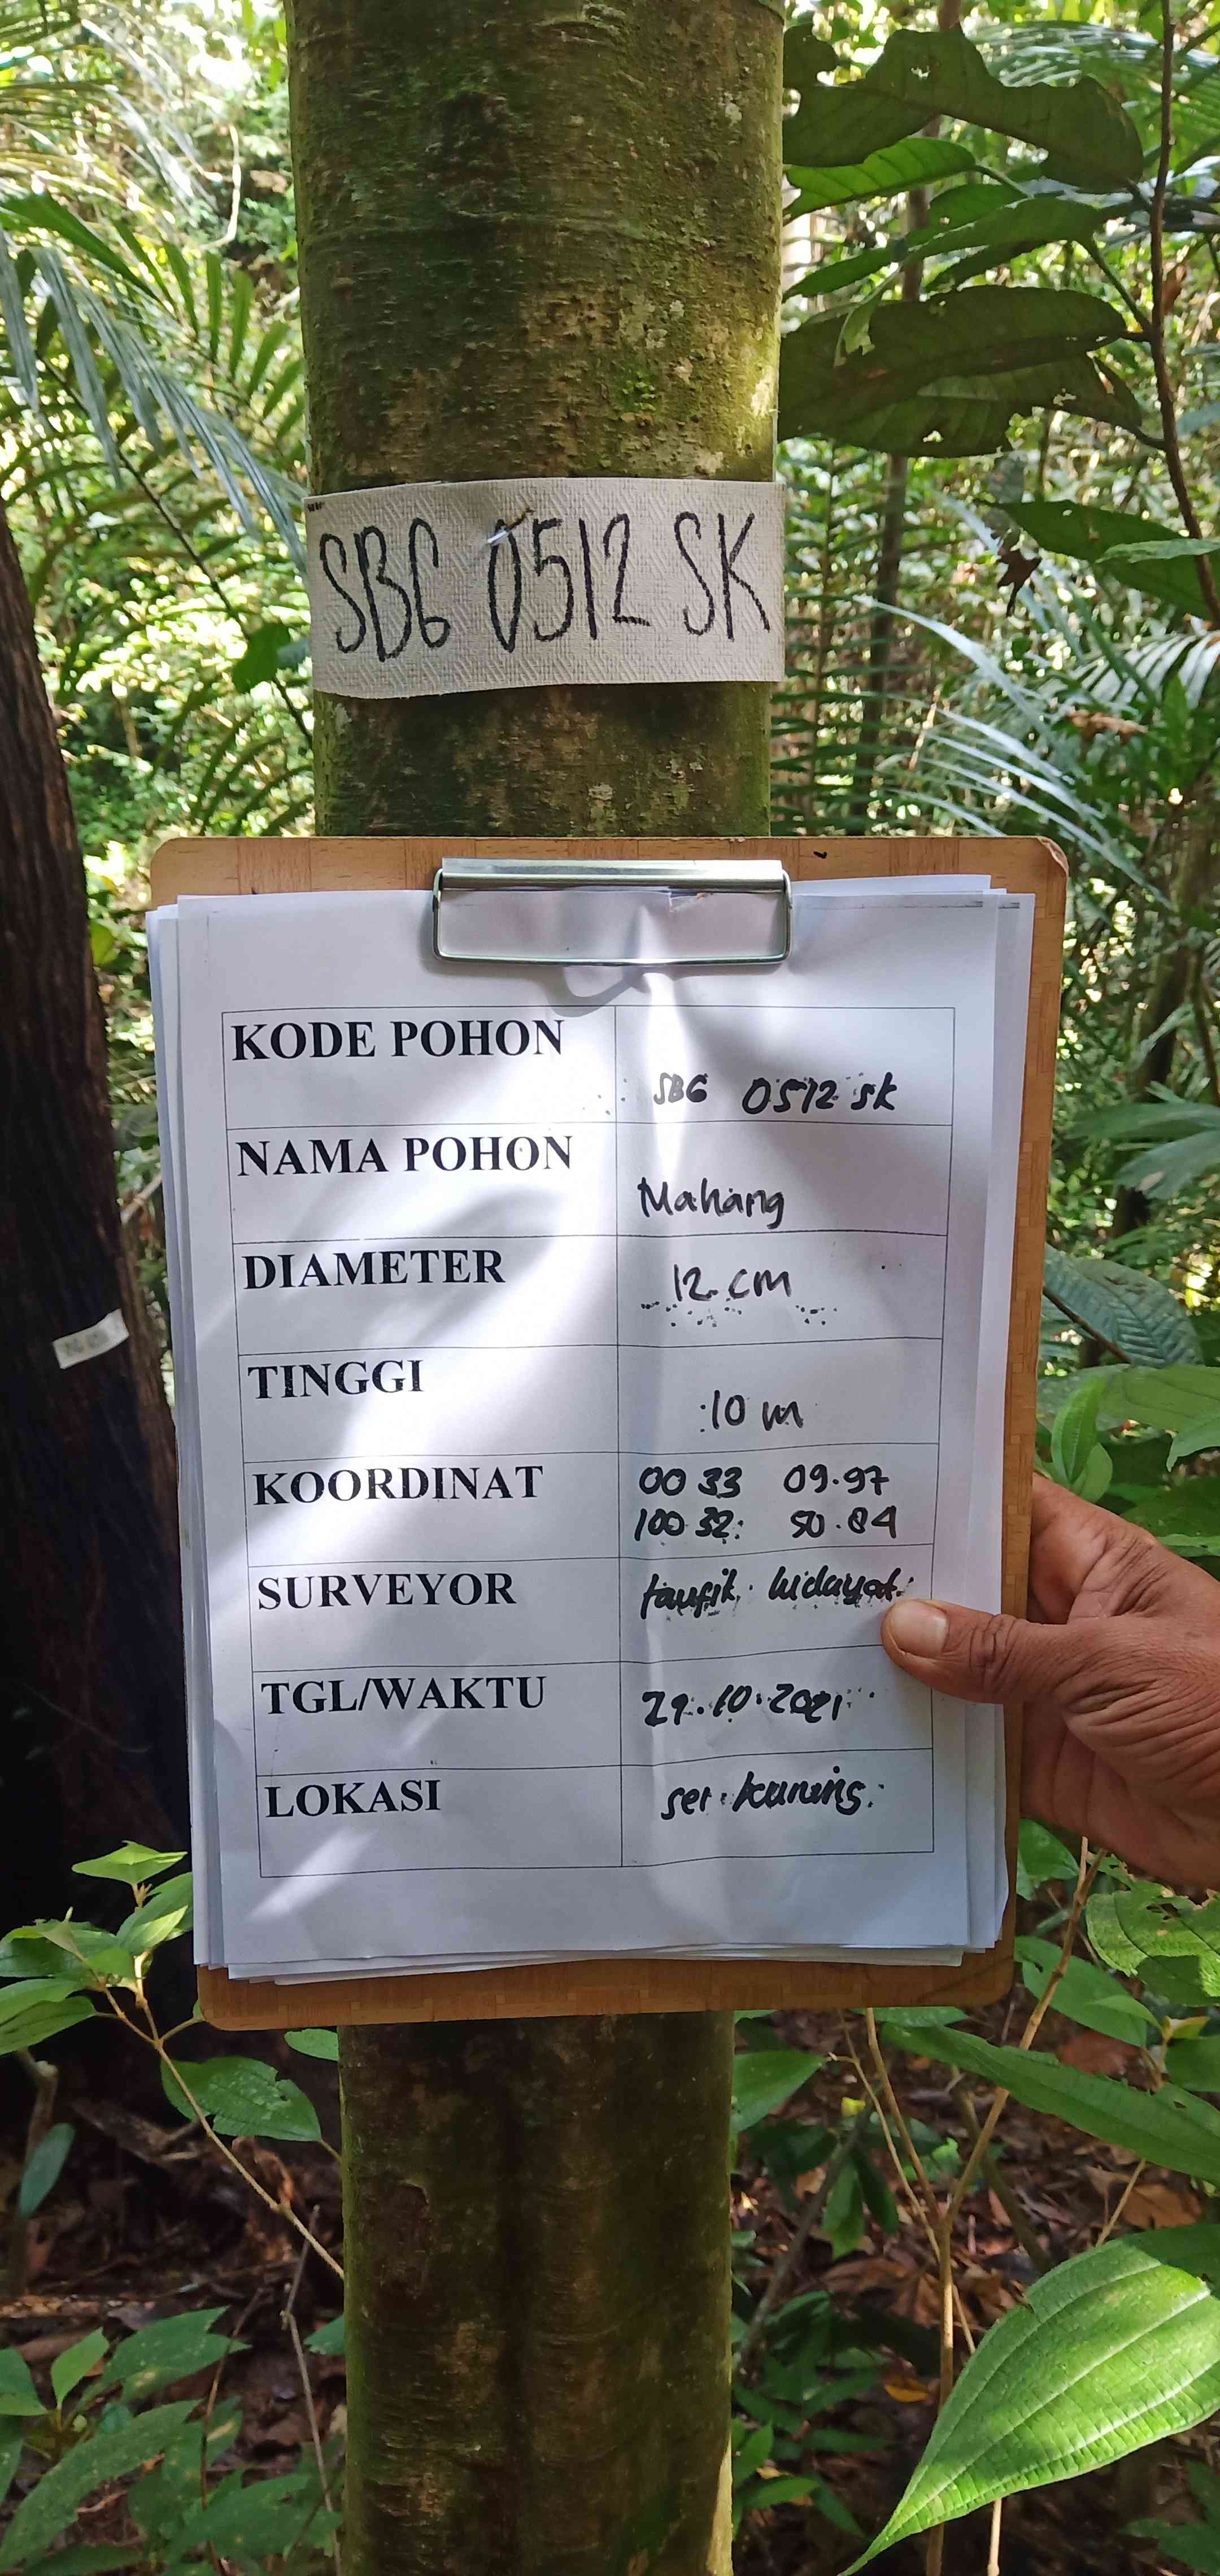 SBG 0512 SK
KODE POHON
SBG 0512 SK
NAMA POHON
Mahang
DIAMETER
12 cm
TINGGI
10 m
KOORDINAT
00 33 09.97
100 32 50.84
SURVEYOR
taufik hidayat
TGL/WAKTU
29.10.2021
LOKASI
sei kuning